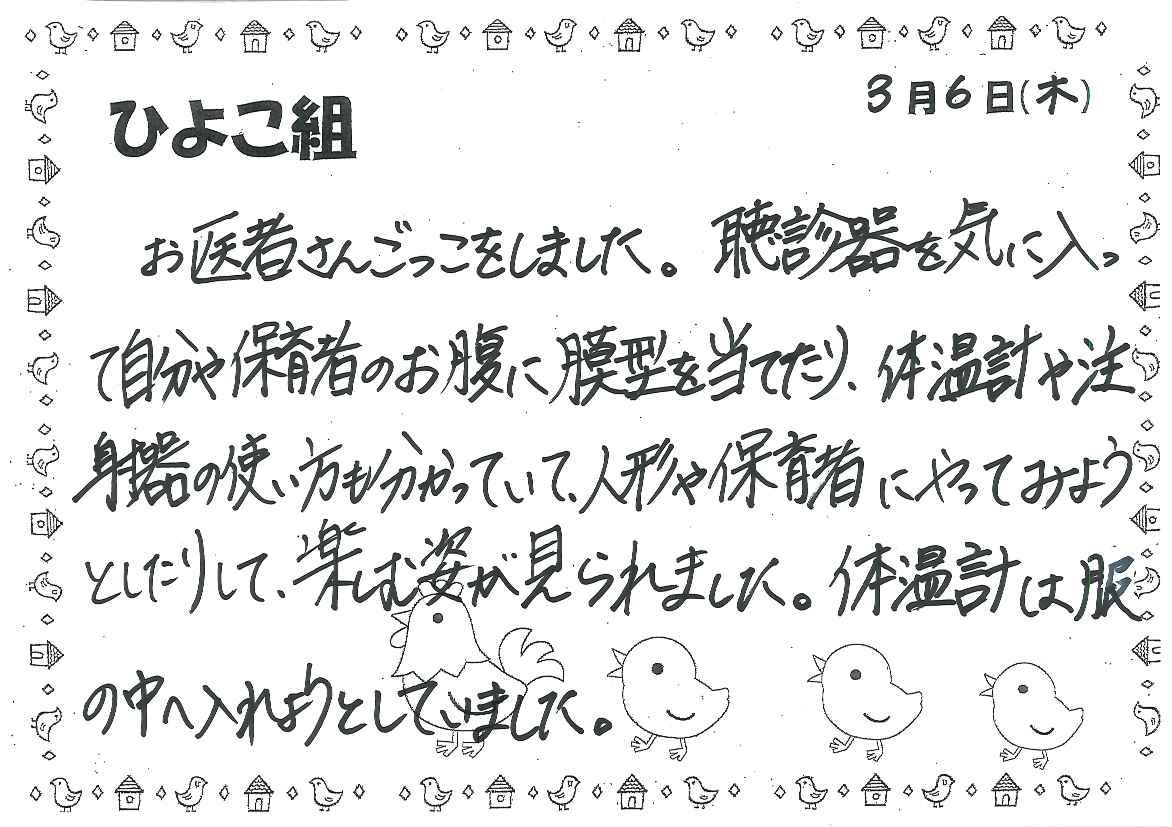 ひよこ組
3月6日(木)
お医者さんごっこをしました。聴診器を気に入っ
て自分や保育者のお腹に膜型を当てたり、体温計や注
射器の使い方も分かっていて、人形や保育者にやってみよう
としたりして、楽しむ姿が見られました。体温計は服
の中へ入れようとしていました。